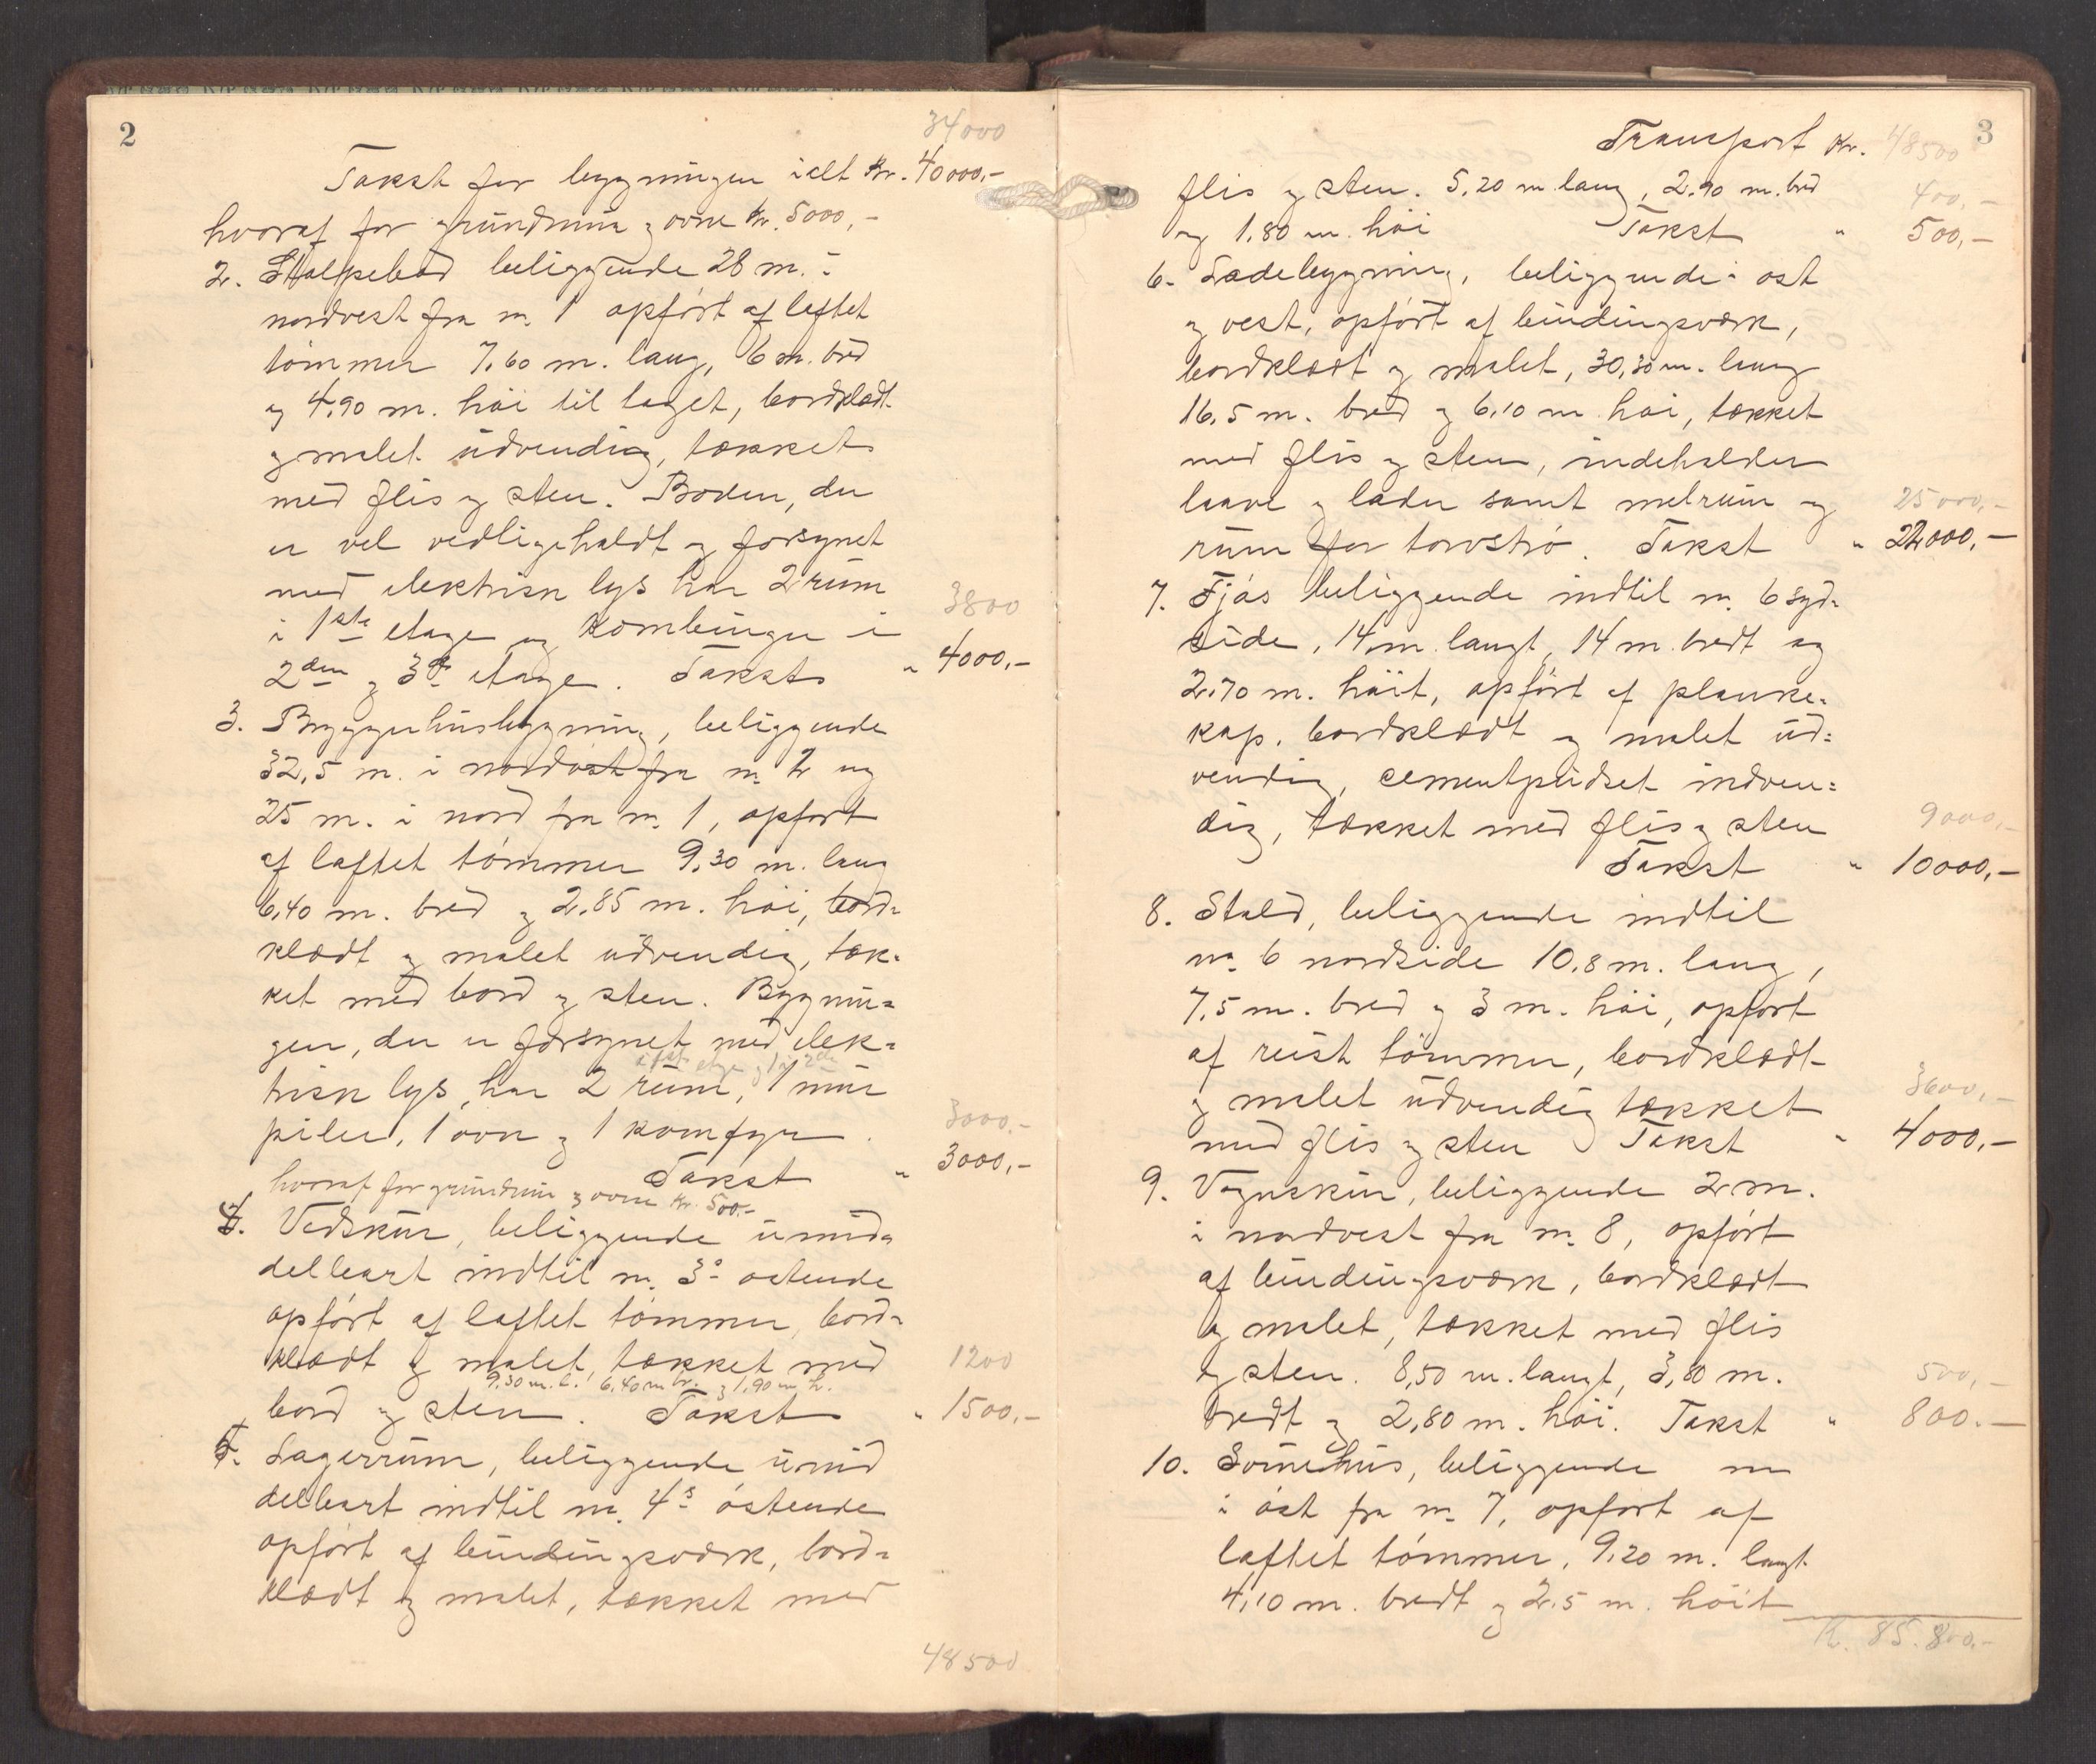 2
34000
Takst for bygningen ialt Kr. 40000,-
hvoraf for grundmur og ovne Kr. 5000,-
2. Stolpebod beliggende 28 m. i
nordvest fra no. 1 opført af laftet
tømmer 7,60 m. lang, 6 m. bred
og 4,90 m. høi til taget, bordklædt
og malet udvendig, tækket
med flis og sten. Boden, der
er vel vedligeholdt og forsynet
med elektrisk lys har 2 rum
i 1ste etage og Kornbinger i
3800
2den og 3de etage. Takst " 4000,-
3. Bryggerhusbygning, beliggende
32,5 m. i nordøst fra no. 2 og
25 m. i nord fra no. 1, opført
af laftet tømmer 9,30 m. lang
6,40 m. bred og 2,85 m. høi, bord-
klædt og malet udvendig, tæk-
ket med bord og sten. Bygnin-
gen, der er forsynet med elek-
i 1ste etage og 1 i 2den
trisk lys, har 2 rum, 1 mur
piler, 1 ovn og 1 komfyr.
3000,-
Takst " 3000,-
hvoraf for grundmur og ovne Kr. 500,-
4. Vedskur, beliggende umid-
delbart indtil no. 3s østende
opført af laftet tømmer, bord-
klædt og malet, tækket med
1200
9,30 m. l. 6,40 m br. og 1,90 m h.
bord og sten. Takst " 1500,-
5. Lagerrum, beliggende umid
delbart indtil no. 4s østende
opført af bindingsværk, bord-
klædt og malet, tækket med
48500
3
Transport Kr. 48500
flis og sten. 5,20 m lang, 2,90 m. bred
400,-
og 1,80 m. høi Takst " 500,-
6. Ladebygning, beliggende i øst
og vest, opført af bindingsværk,
bordklædt og malet, 30,30 m. lang
16,5 m. bred og 6,10 m høi, tækket
med flis og sten, indeholder
laave og lader samt melrum og
25000,-
rum for torvstrø. Takst " 22000,-
7. Fjøs beliggende indtil no. 6 syd-
side, 14 m. langt, 14 m. bredt og
2,70 m. høit, opført af planke-
kap. bordklædt og malet ud-
vendig, cementpudset indven-
dig, tækket med flis og sten
9000,-
Takst " 10000,-
8. Stald, beliggende indtil
no. 6 nordside 10,8 m. lang,
7,5 m. bred og 3 m. høi, opført
af reist tømmer, bordklædt
og malet udvendig tækket
3600,-
med flis og sten Takst " 4000,-
9. Vognskur, beliggende 2 m.
i nordvest fra no. 8, opført
af bindingsværk, bordklædt
og malet, tækket med flis
og sten. 8,50 m. langt, 3,80 m.
500,-
bredt og 2,80 m. høi. Takst " 800.-
10. Svinehus, beliggende m
i øst fra no. 7, opført af
laftet tømmer, 9,20 m. langt
4,10 m. bredt og 2,5 m. høit
Kr. 85.800,-